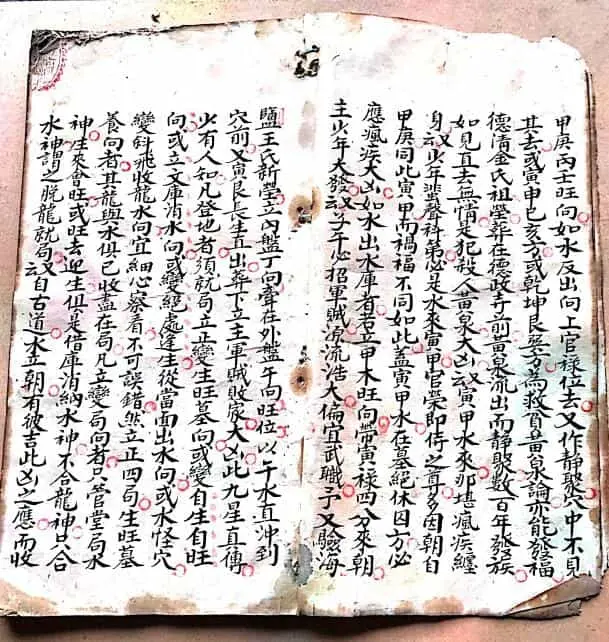 甲庚丙壬旺向如水反出向上官祿位去又作靜聚穴中不見
其去或寅申巳亥方或乾坤艮巽方為救貧黃泉論亦能發福
德清金氏祖塋葬在德政寺前黃泉流出而靜聚數百年發族
如見直去無情是犯殺人黃泉大凶又云寅甲水來那堪瘋疾纏
身又云少年蜚聲科第必是水來寅甲官榮即侍之尊多因朝自
甲庚同此寅甲而禍福不同如此蓋寅甲水在墓絕休囚方必
應瘋疾大凶如水出水庫者若立甲木旺向帶寅祿四分來朝
主少年大發又云子午心招軍賊流浩大偏宜武職子又驗海
鹽王氏新塋立內盤丁向牽在外盤午向旺位以午水直冲到
穴前又寅艮長生直出葬下立主軍賊敗家大凶此九星直傳
少有人知凡登地者須就局立正變生旺墓向或變自生自旺
向或立文庫消水向或變絕處逢生從當面出水向或水怪穴
變斜飛收龍水向宜細心察看不可誤錯然立正四局生旺墓
養向者其龍與水俱已收盡在局凡立變局向者只管堂局水
神生來會旺或旺去迎生俱是借庫消納水神不合龍神只合
水神謂之脫龍就局又云自古道水立朝有彼吉此凶之應而收